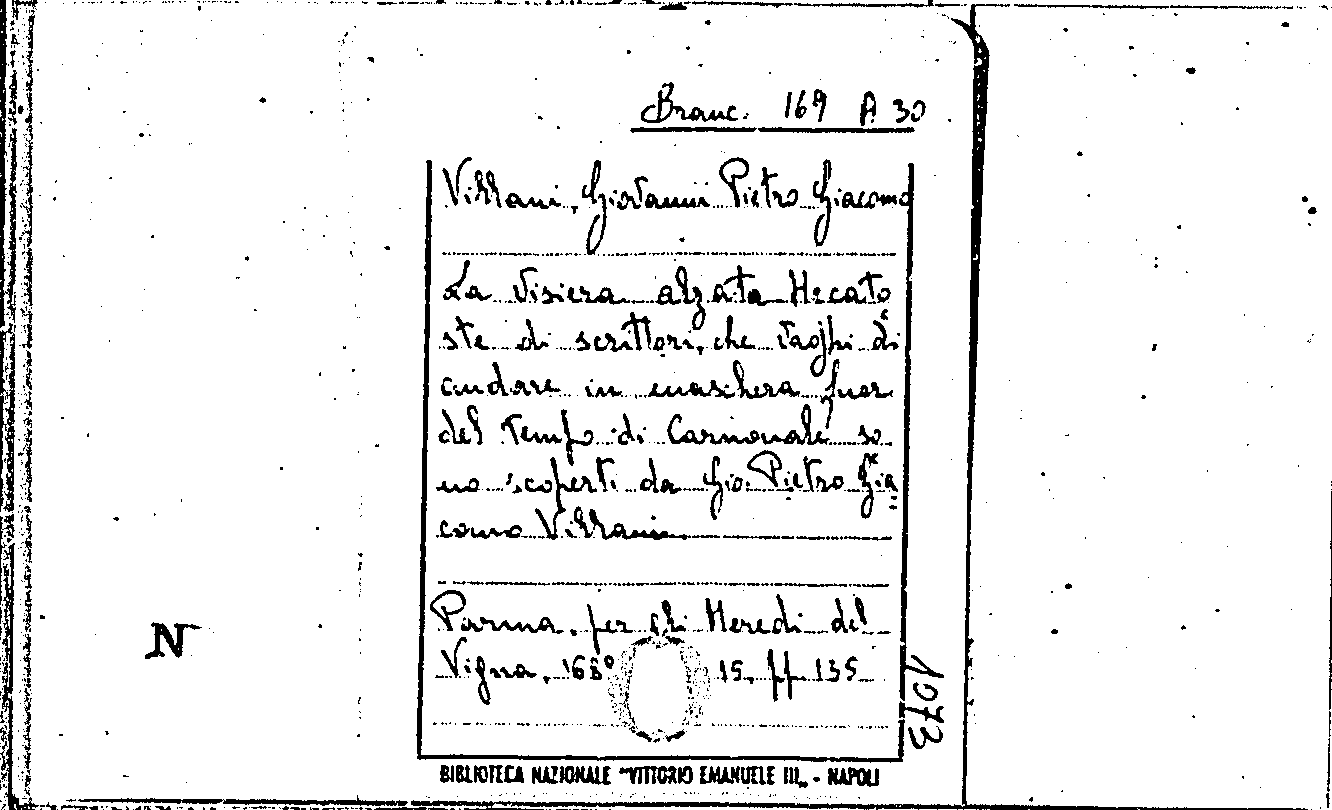 Branc. 169 A 30
Villani, Giovanni Pietro Giacomo
La Visiera alzata Hecato
ste di scrittori, che vaghi di
andare in maschera fuor
del tempo di Carnovale so
no scoperti da Gio. Pietro Gia
como Villani.
Parma, per gli Heredi del
Vigna, 168° 15, pp. 135
1073
N
BIBLIOTECA NAZIONALE "VITTORIO EMANUELE III„ - NAPOLI